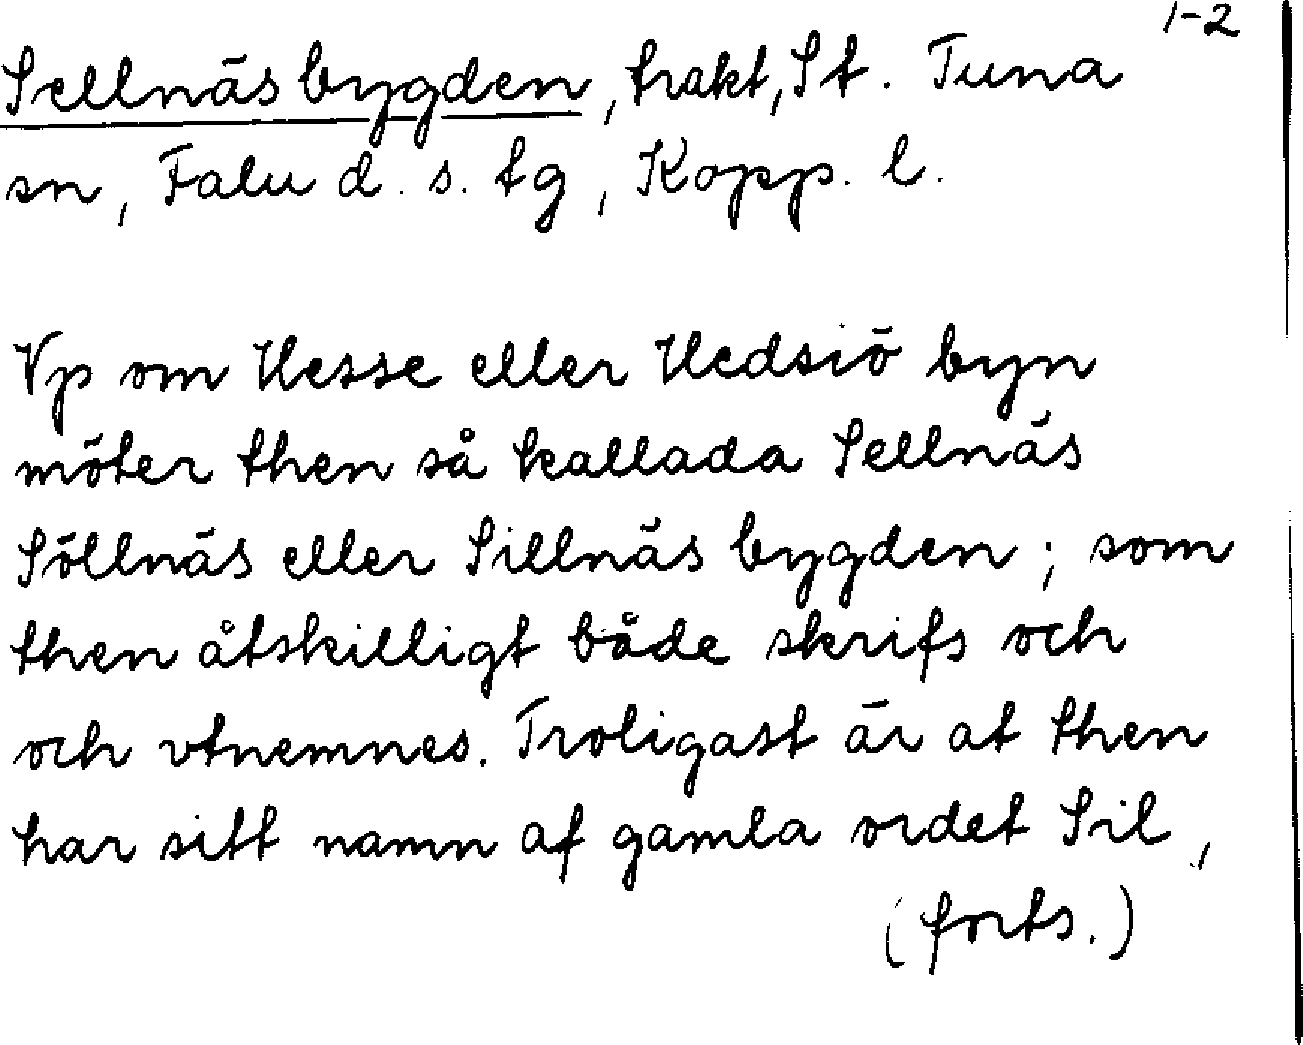 1-2
Sellnäsbygden, trakt, St. Tuna
sn, Falu d. s. tg, Kopp. l.
Vp om Hesse eller Hedsiö byn
möter then så kallada Sellnäs
Söllnäs eller Sillnäs bygden; som
then åtskilligt både skrifs och
och vtnemnes. Troligast är at then
har sitt namn af gamla ordet Sil,
(forts.)